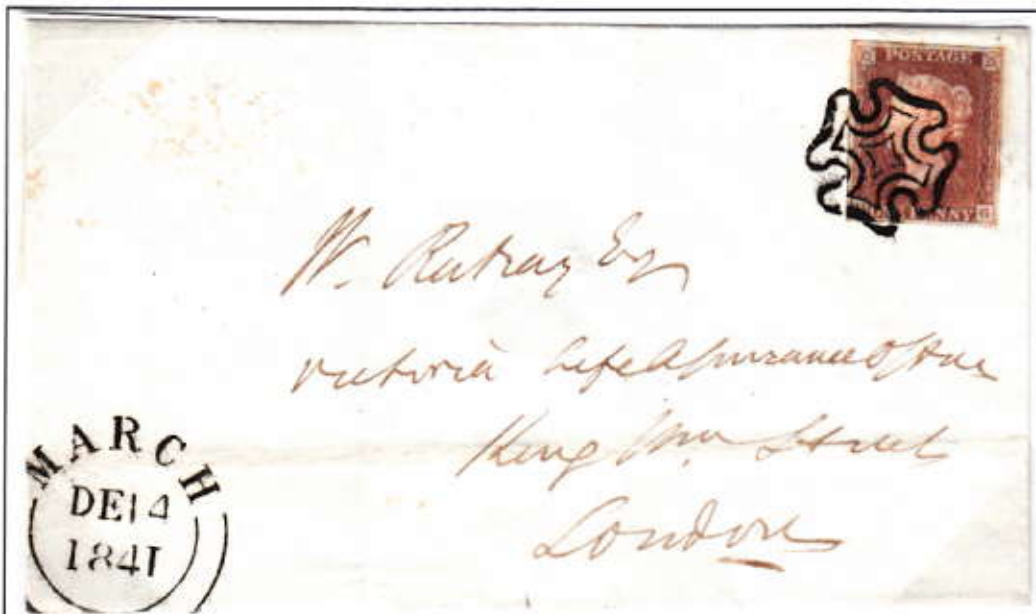 POSTAGE
PENNY
W. Rattray Esq
Victoria Life Assurance Office
King Wm Street
London
MARCH
DE 14
1841